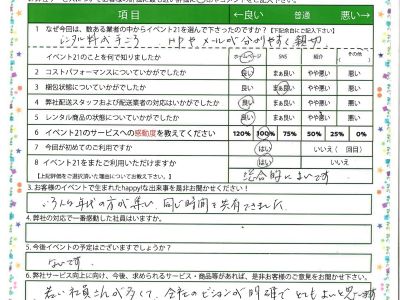 項目 ←良い 普通 悪い→
1 なぜ今回は、数ある業者の中からイベント21を選んで下さったのですか?【下記余白にご記入下さい】
レンタル料が手ごろ HPやメールが分かりやすく親切
イベント21のことを何で知りましたか ホームページ SNS 紹介 その他
2 コストパフォーマンスについていかがでしたか 良い まぁ良い やや悪い 悪い
3 梱包状態についていかがでしたか 良い まぁ良い やや悪い 悪い
4 弊社配送スタッフおよび配送業者の対応はいかがでしたか 良い まぁ良い やや悪い 悪い
5 レンタル商品の状態についていかがでしたか 良い まぁ良い やや悪い 悪い
6 イベント21のサービスへの感動度を教えてください 120% 100% 75% 50% 25% 0%
7 今回が初めてのご利用ですか はい いいえ( 回目)
8 イベント21をまたご利用いただけますか はい いいえ
【上記評価をご選択頂いた理由についてお教え下さい。】 総合的によいです
3.お客様のイベントで生まれたhappyな出来事を是非お聞かせください!
いろんな年代の方が集い、同じ時間を共有できました
4.弊社の対応で一番感動した社員はいますか。
5.今後イベントの予定はございますでしょうか?
ないです
6.弊社サービス向上に向け、今後、求められるサービス・商品等があれば、是非お客様のご意見をお聞かせ下さい。
若い社員さんが多くて、会社のビジョンが明確でとてもよいと思います